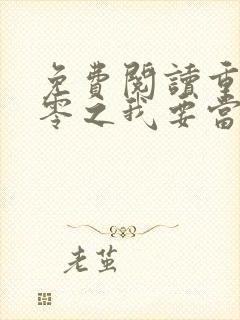 免費閱讀重
零之我要當
老茧